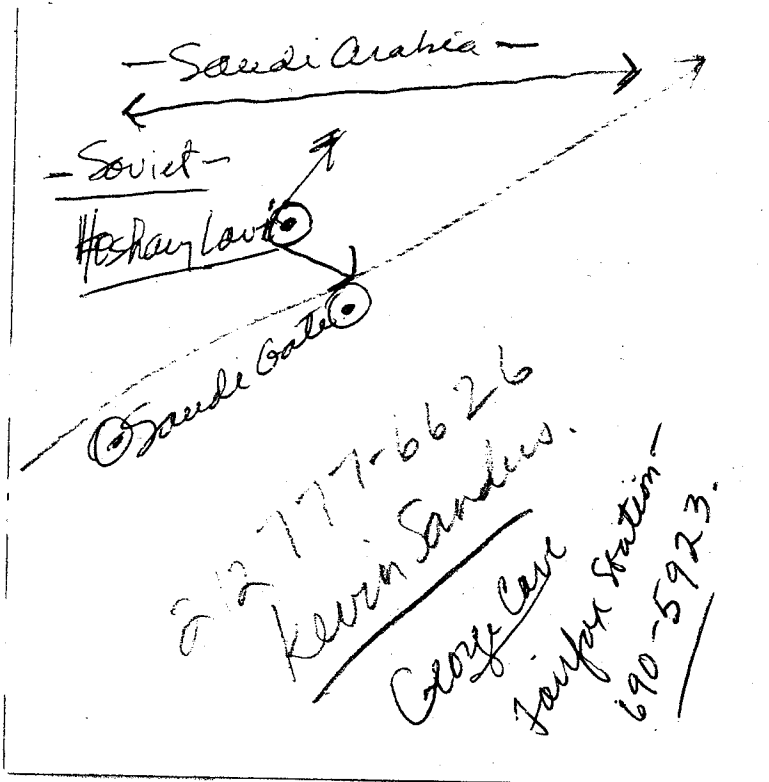 -Saudi Arabia-
-Soviet-
Saudi Gate
212 777-6626
Kevin Sanders.
George Cave
Fairfax Station-
690-5923.